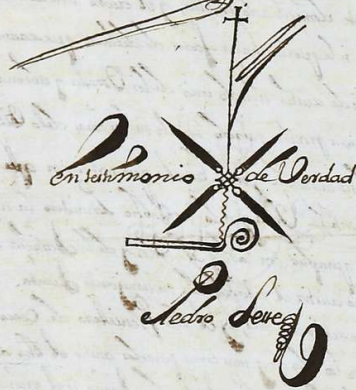 en testimonio de Verdad
Pedro